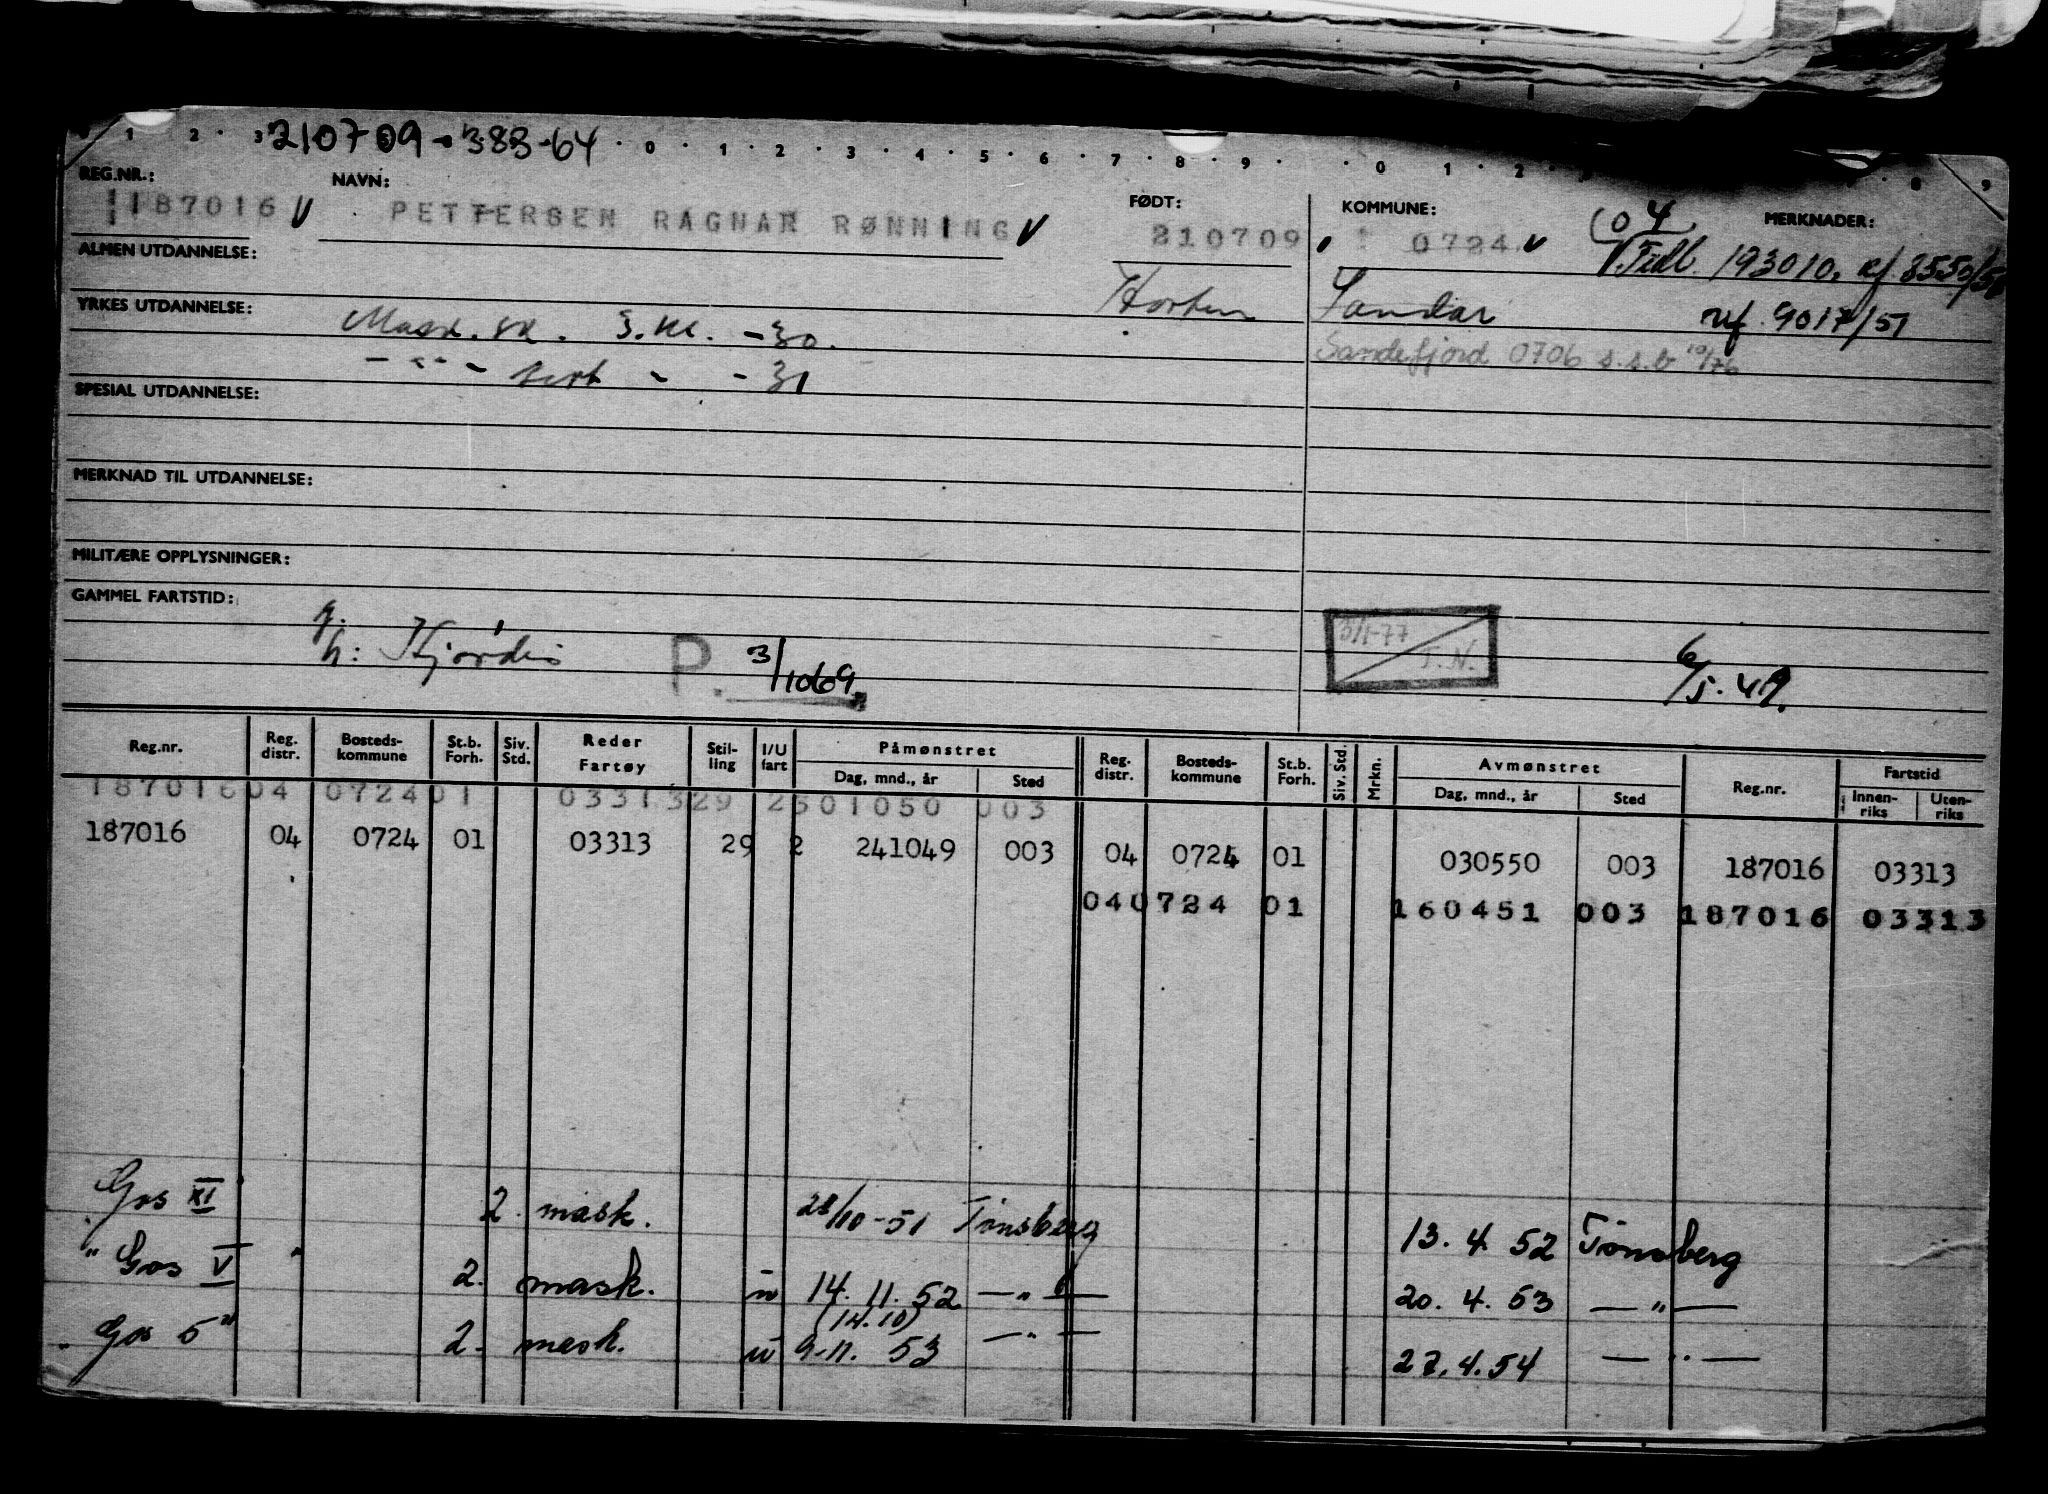 1 2 3 210709-383-64 0 1 2 3 4 5 6 7 8 9 0 1 2 8 9
REG.NR.: NAVN: FØDT: KOMMUNE: MERKNADER:
187016 V PETTERSEN RAGNAR RØNNING V 210709 0724 V 04
ALMEN UTDANNELSE: V. Fidl. 193010,
YRKES UTDANNELSE: Mask. sk. 3. kl. -30. Horten Sandar ref. 9017/51
-"- sert - -31 Sandefjord 0706 s.s.b 10/76
SPESIAL UTDANNELSE:
MERKNAD TIL UTDANNELSE:
MILITÆRE OPPLYSNINGER:
GAMMEL FARTSTID:
h: Hjørdis P. 3/1069 3/1-77 T.N. 6/5.49.
Reg.nr. Reg. distr. Bosteds- kommune St.b. Forh. Siv. Std. Reder Fartøy Stil- ling I/U fart Påmønstret Dag, mnd., år Sted Reg. distr. Bosteds- kommune St.b. Forh. Siv. Std. Mrkn. Avmønstret Dag, mnd., år Sted Reg.nr. Fartstid Innen- riks Uten- riks
187016 04 0724 01 03313 29 2 301050 003
187016 04 0724 01 03313 29 2 241049 003 04 0724 01 030550 003 187016 03313
04 0724 01 160451 003 187016 03313
Gos XI 2. mask. 28/10-51 Tønsberg 13.4 52 Tønsberg
" Gos V " 2. mask. u 14.11.52 —"— 20.4.53 —"—
(14.10)
" Gos 5" 2. mask. u 9.11.53 —"— 27.4.54 —"—